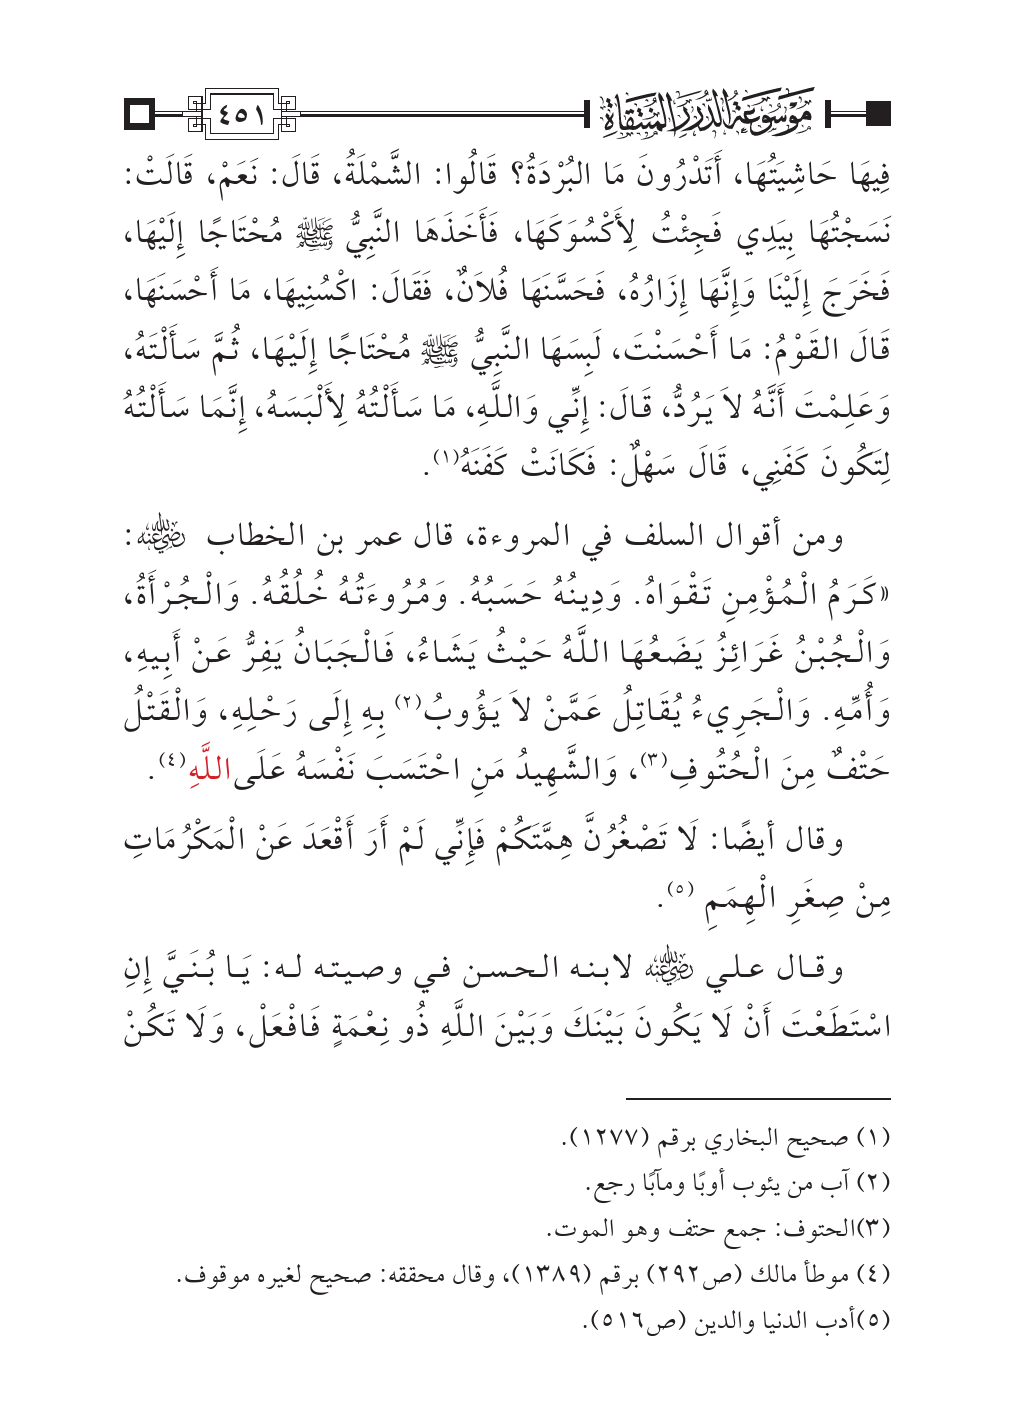 موسوعة الدرر المنتقاة
٤٥١
فِيهَا حَاشِيَتُهَا، أَتَدْرُونَ مَا البُرْدَةُ؟ قَالُوا: الشَّمْلَةُ، قَالَ: نَعَمْ، قَالَتْ:
نَسَجْتُهَا بِيَدِي فَجِئْتُ لِأَكْسُوَكَهَا، فَأَخَذَهَا النَّبِيُّ ﷺ مُحْتَاجًا إِلَيْهَا،
فَخَرَجَ إِلَيْنَا وَإِنَّهَا إِزَارُهُ، فَحَسَّنَهَا فُلاَنٌ، فَقَالَ: اكْسُنِيهَا، مَا أَحْسَنَهَا،
قَالَ القَوْمُ: مَا أَحْسَنْتَ، لَبِسَهَا النَّبِيُّ ﷺ مُحْتَاجًا إِلَيْهَا، ثُمَّ سَأَلْتَهُ،
وَعَلِمْتَ أَنَّهُ لاَ يَرُدُّ، قَالَ: إِنِّي وَاللَّهِ، مَا سَأَلْتُهُ لِأَلْبَسَهُ، إِنَّمَا سَأَلْتُهُ
لِتَكُونَ كَفَنِي، قَالَ سَهْلٌ: فَكَانَتْ كَفَنَهُ(١).
ومن أقوال السلف في المروءة، قال عمر بن الخطاب رضي الله عنه:
«كَرَمُ الْمُؤْمِنِ تَقْوَاهُ. وَدِينُهُ حَسَبُهُ. وَمُرُوءَتُهُ خُلُقُهُ. وَالْجُرْأَةُ،
وَالْجُبْنُ غَرَائِزُ يَضَعُهَا اللَّهُ حَيْثُ يَشَاءُ، فَالْجَبَانُ يَفِرُّ عَنْ أَبِيهِ،
وَأُمِّهِ. وَالْجَرِيءُ يُقَاتِلُ عَمَّنْ لاَ يَؤُوبُ(٢) بِهِ إِلَى رَحْلِهِ، وَالْقَتْلُ
حَتْفٌ مِنَ الْحُتُوفِ(٣)، وَالشَّهِيدُ مَنِ احْتَسَبَ نَفْسَهُ عَلَى اللَّهِ(٤).
وقال أيضًا: لَا تَصْغُرُنَّ هِمَّتَكُمْ فَإِنِّي لَمْ أَرَ أَقْعَدَ عَنْ الْمَكْرُمَاتِ
مِنْ صِغَرِ الْهِمَمِ (٥).
وقال علي رضي الله عنه لابنه الحسن في وصيته له: يَا بُنَيَّ إِنِ
اسْتَطَعْتَ أَنْ لَا يَكُونَ بَيْنَكَ وَبَيْنَ اللَّهِ ذُو نِعْمَةٍ فَافْعَلْ، وَلَا تَكُنْ
(١) صحيح البخاري برقم (١٢٧٧).
(٢) آب من يئوب أوبًا ومآبًا رجع.
(٣)الحتوف: جمع حتف وهو الموت.
(٤) موطأ مالك (ص٢٩٢) برقم (١٣٨٩)، وقال محققه: صحيح لغيره موقوف.
(٥)أدب الدنيا والدين (ص٥١٦).